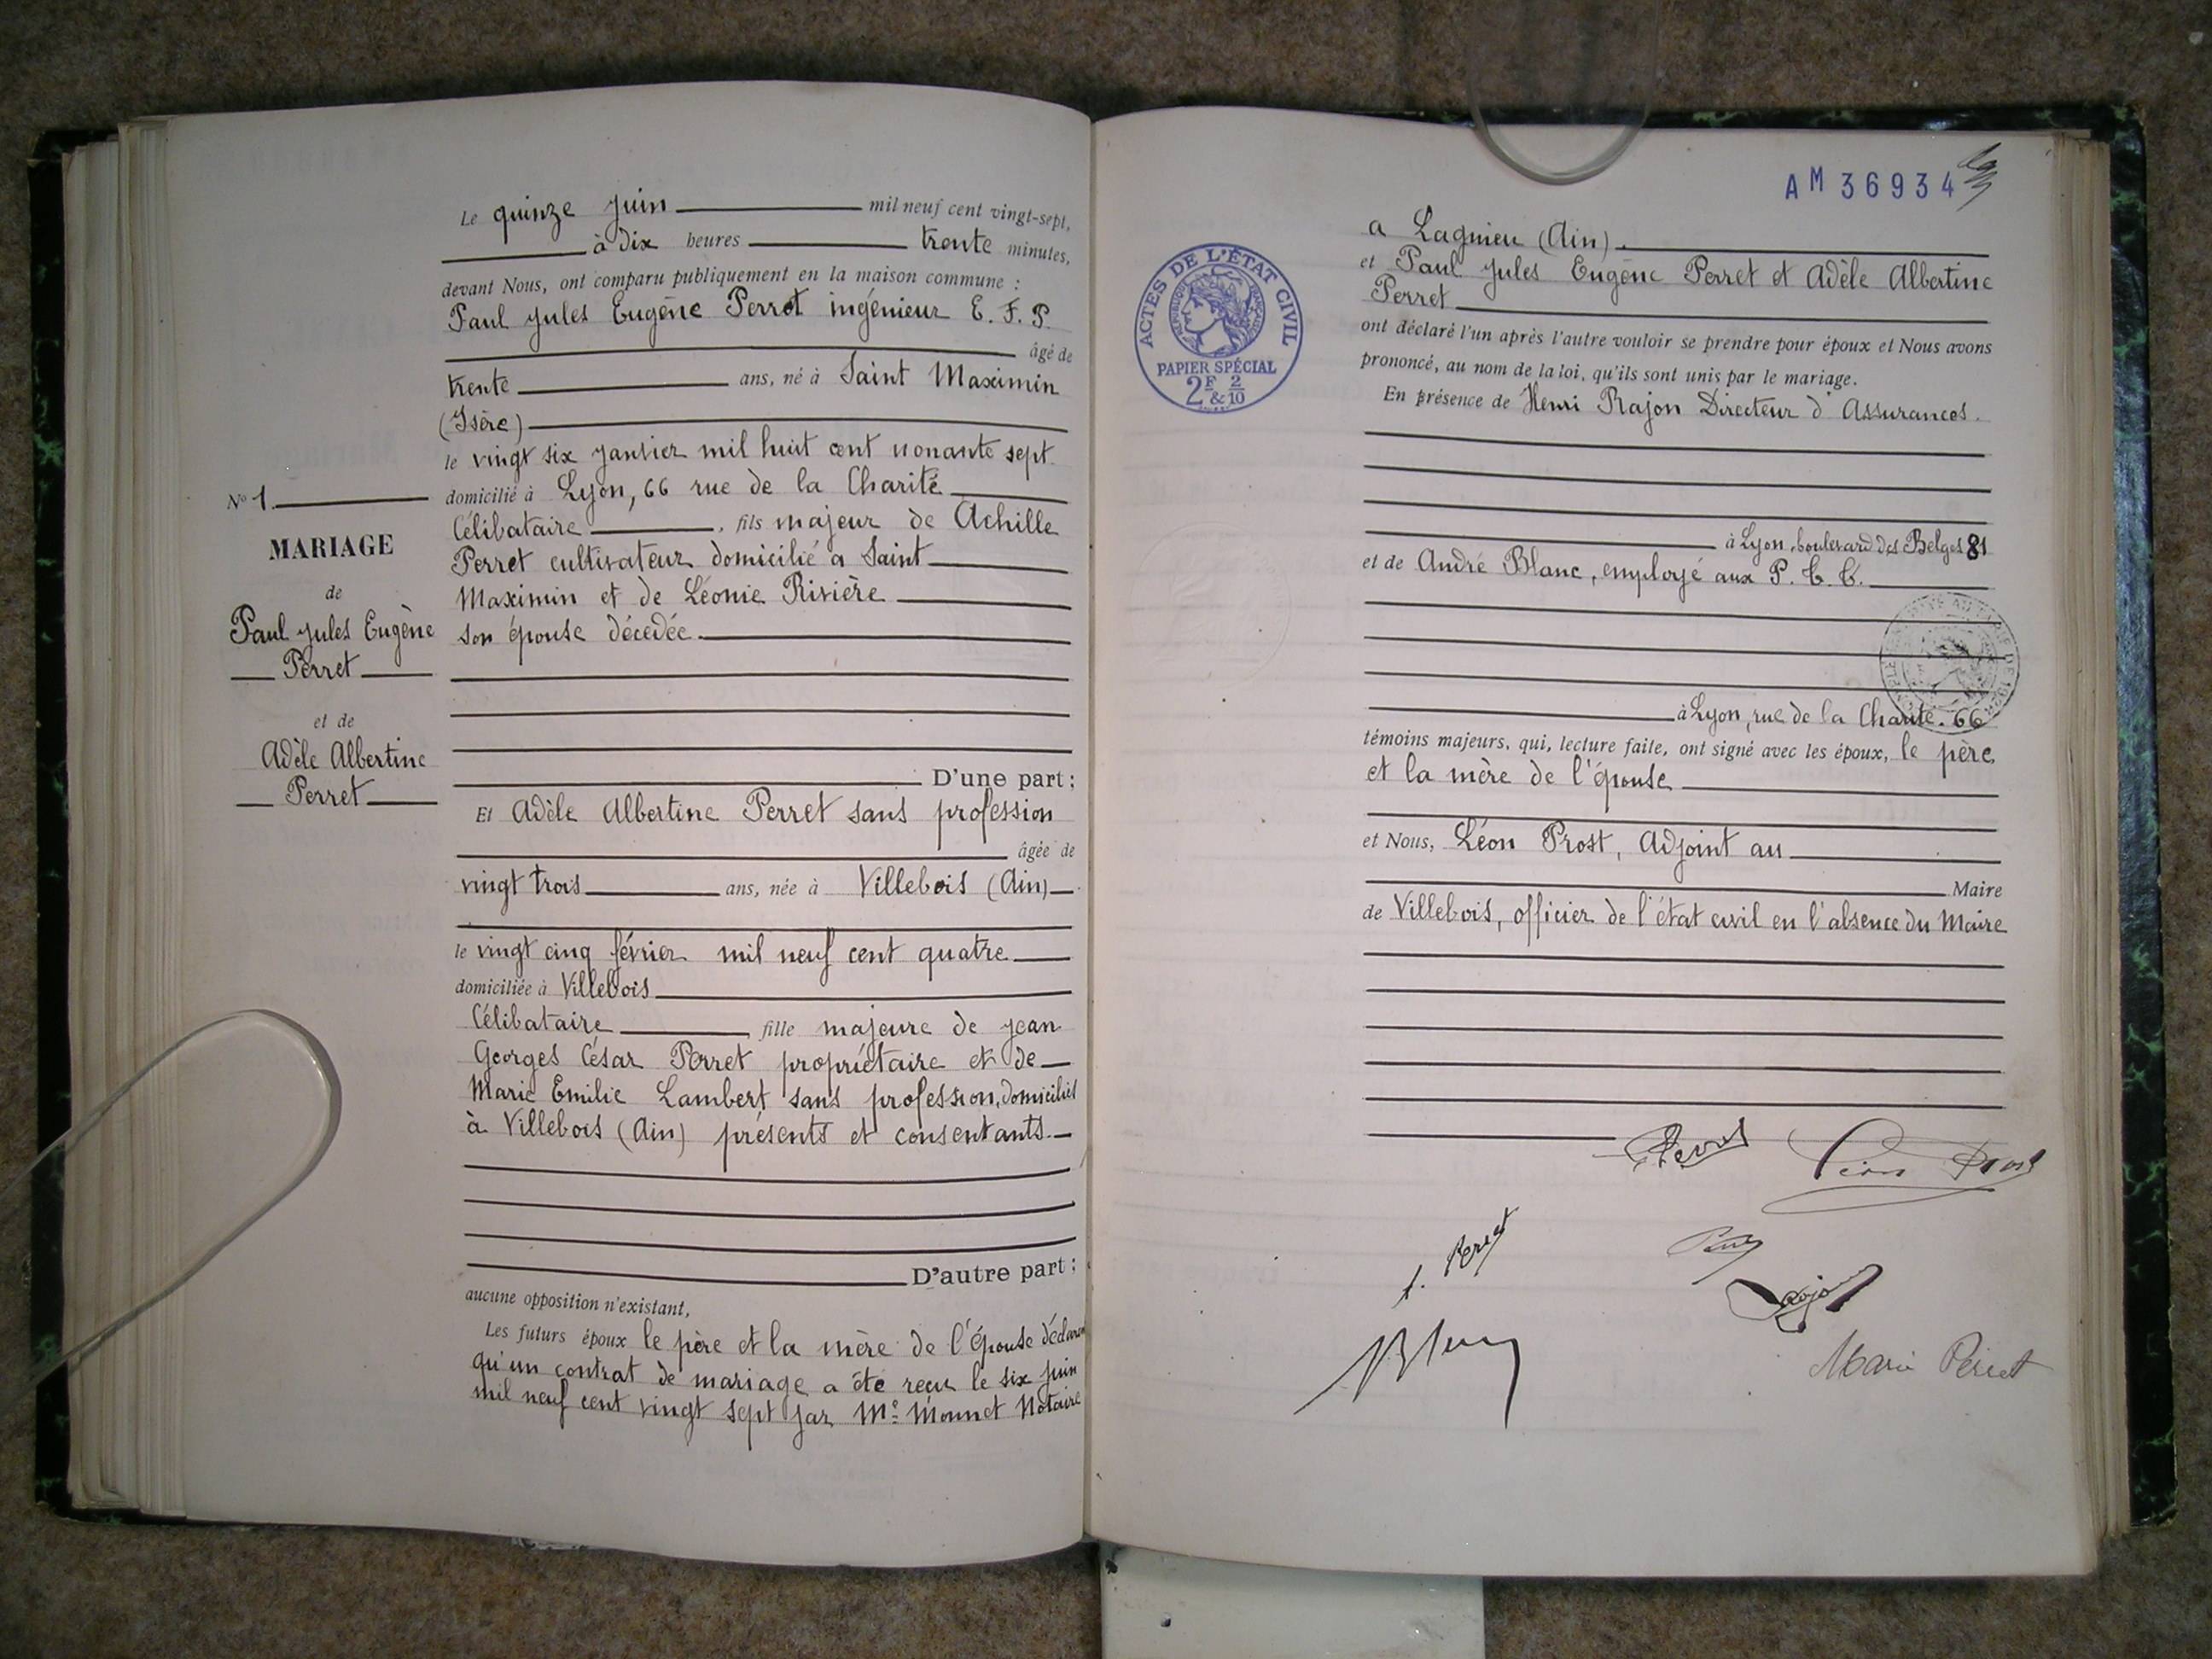 Le quinze juin mil neuf cent vingt-sept,
à dix heures trente minutes,
devant Nous, ont comparu publiquement en la maison commune :
Paul Jules Eugène Perret ingénieur E. F. P.
âgé de
trente ans, né à Saint Maximin
(Isère)
le vingt six janvier mil huit cent nonante sept
domicilié à Lyon, 66 rue de la Charité
Célibataire, fils majeur de Achille
Perret cultivateur domicilié a Saint
Maximin et de Léonie Rivière
son épouse décedée
D'une part :
Et Adèle Albertine Perret sans profession
âgée de
vingt trois ans, née à Villebois (Ain)
le vingt cinq février mil neuf cent quatre
domiciliée à Villebois
Célibataire, fille majeure de Jean
Georges César Perret propriétaire et de
Marie Emilie Lambert sans profession, domiciliés
à Villebois (Ain) présents et consentants
D'autre part :
aucune opposition n'existant,
Les futurs époux le père et la mère de l'épouse déclarent
qu'un contrat de mariage a été reçu le six juin
mil neuf cent vingt sept par Me Monnet Notaire
No 1
MARIAGE
de
Paul Jules Eugène
Perret
et de
Adèle Albertine
Perret
AM 36934
ACTES DE L'ÉTAT CIVIL
RÉPUBLIQUE FRANÇAISE
PAPIER SPÉCIAL
2F & 2/10
a Lagnieu (Ain).
et Paul Jules Eugène Perret et Adèle Albertine
Perret
ont déclaré l'un après l'autre vouloir se prendre pour époux et Nous avons
prononcé, au nom de la loi, qu'ils sont unis par le mariage.
En présence de Henri Rajon Directeur d'Assurances.
à Lyon, boulevard des Belges 81
et de André Blanc, employé aux P. T. T.
à Lyon, rue de la Charité. 66
témoins majeurs, qui, lecture faite, ont signé avec les époux, le père
et la mère de l'épouse
et Nous, Léon Prost, Adjoint au
Maire
de Villebois, officier de l'état civil en l'absence du Maire
Perret Léon Prost
Perret
Rajon
Blanc
Marie Perret